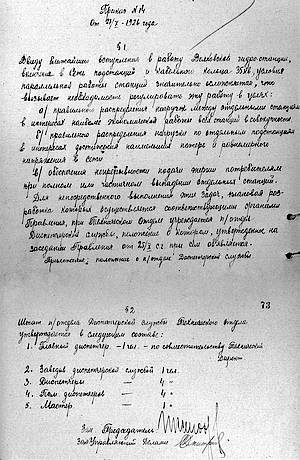 Приказ №14
От 27/X - 1926 года
§ 1
Ввиду ближайшего вступления в работу Волховской гидростанции,
включения в сеть подстанций и кабельного кольца 35кв. условия
параллельной работы станций значительно осложняются, что
вызывает необходимость регулировать эту работу в целях:
а) правильного распределения нагрузки между отдельными станциями
в интересах наиболее экономической работы всей станций в совокупности
б) правильного распределения нагрузки по отдельным подстанциям
в интересах достижения наименьших потерь и равномерного
напряжения в сети
в) обеспечения непрерывности подачи энергии потребителям
при полном или частичном выпадении отдельных станций.
Для непосредственного выполнения этих задач, плановая раз-
работка которых осуществляется соответствующими органами
Правления, при Техническом отделе учреждается п/отдел
Диспетчерской службы, положение о котором, утвержденное на
заседании Правления от 25/X с.г. при сём объявляется.
Приложение: положение о п/отделе Диспетчерской службы
73
§2.
Штат п/отдела Диспетчерской службы Технического отдела
утверждается в следующем составе:
1. Главный диспетчер - 1 чел. - по совместительству Технический
2. Заведыв диспетчерской службой 1 чел.
3. Диспетчеров - 4 "
4. Пом. диспетчеров - 4 "
5. Мастер - 1 "
Зам. Председателя
Зав. Управляющий Делами